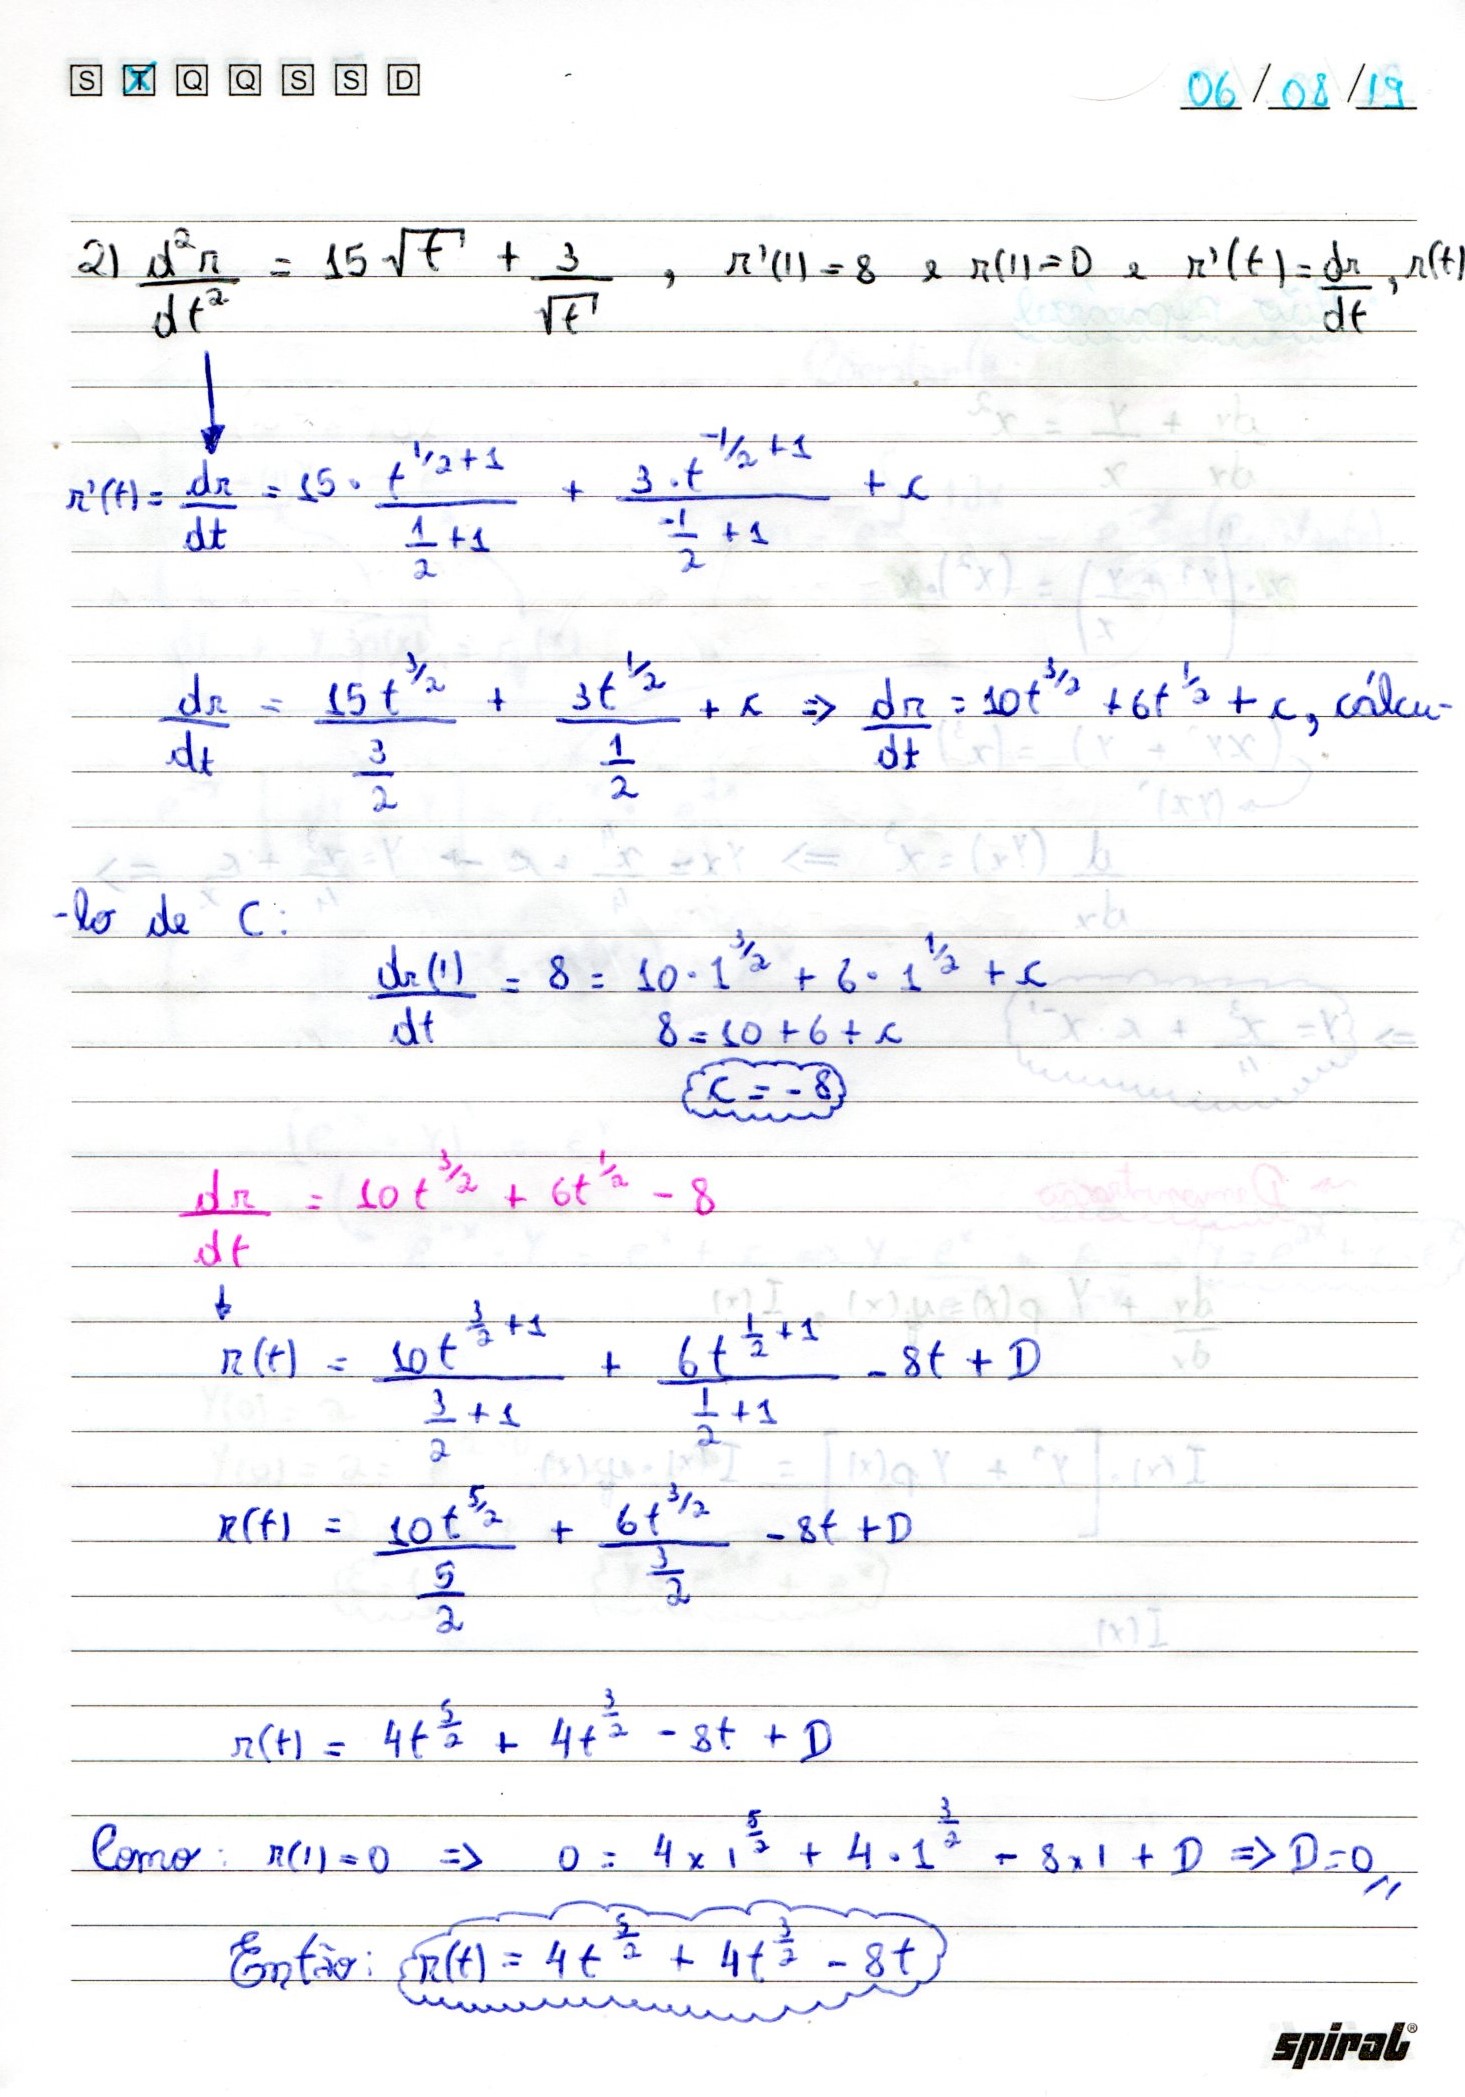 S T Q Q S S D 06/08/19
2) d²r/dt² = 15√t + 3/√t , r'(1) = 8 e r(1) = 0 e r'(t) = dr/dt, r(t)
r'(t) = dr/dt = 15 · t^(1/2+1)/(1/2+1) + 3·t^(-1/2+1)/(-1/2+1) + c
dr/dt = 15t^(3/2)/(3/2) + 3t^(1/2)/(1/2) + c ⇒ dr/dt = 10t^(3/2) + 6t^(1/2) + c, cálcu-
-lo de C:
dr(1)/dt = 8 = 10·1^(3/2) + 6·1^(1/2) + c
8 = 10 + 6 + c
c = -8
dr/dt = 10t^(3/2) + 6t^(1/2) - 8
r(t) = 10t^(3/2+1)/(3/2+1) + 6t^(1/2+1)/(1/2+1) - 8t + D
r(t) = 10t^(5/2)/(5/2) + 6t^(3/2)/(3/2) - 8t + D
r(t) = 4t^(5/2) + 4t^(3/2) - 8t + D
Como: r(1) = 0 ⇒ 0 = 4×1^(5/2) + 4·1^(3/2) - 8×1 + D ⇒ D = 0
Então: r(t) = 4t^(5/2) + 4t^(3/2) - 8t
spiral®